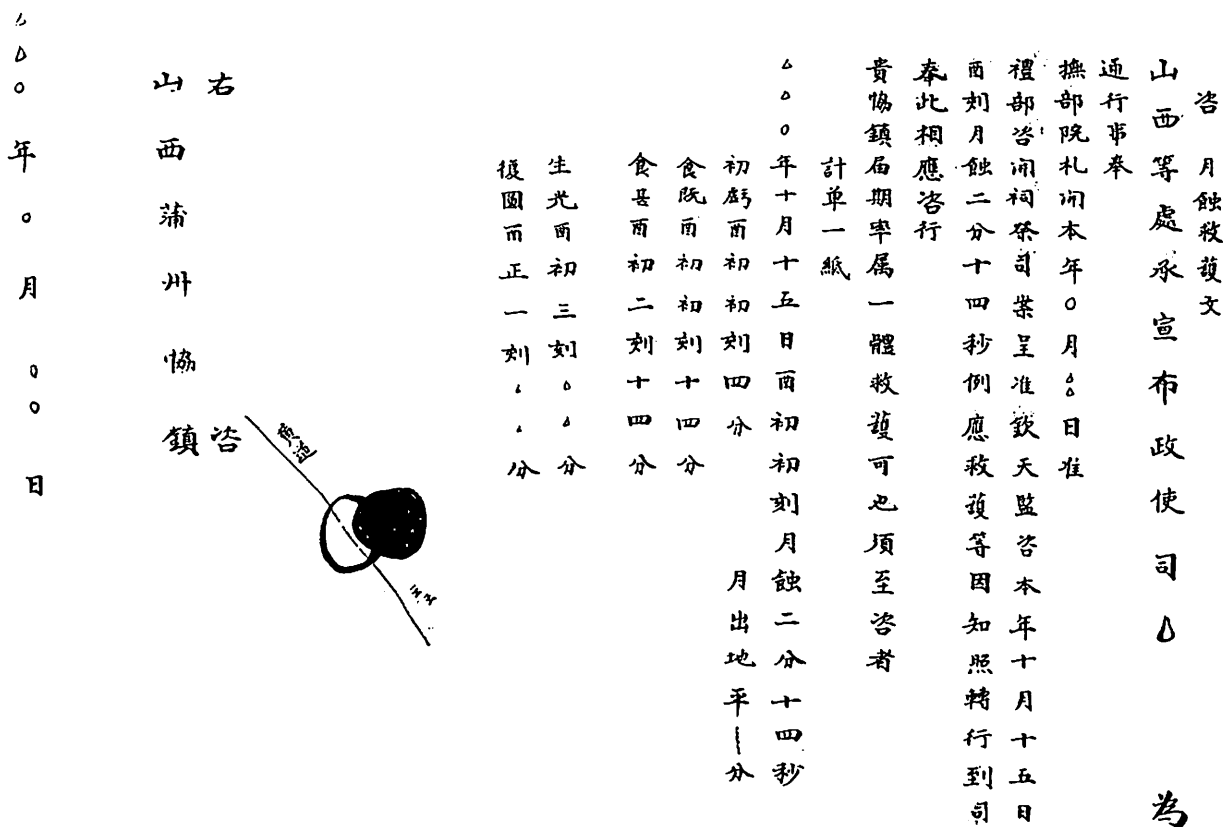 咨 月蝕救護文
山西等處承宣布政使司△ 為
通行事奉
撫部院札開本年○月△△日准
禮部咨開祠祭司案呈准欽天監咨本年十月十五日
酉刻月蝕二分十四秒例應救護等因知照轉行到司
奉此相應咨行
貴協鎮屆期率属一體救護可也須至咨者
計单一紙
△△○年十月十五日酉初初刻月蝕二分十四秒
初虧酉初初刻四分 月出地平 分
食既酉初初刻十四分
食甚酉初二刻十四分
生光酉初三刻△△分
復圓酉正一刻△△分
黄道
右 咨
山西蒲州協鎮
△○年○月○○日